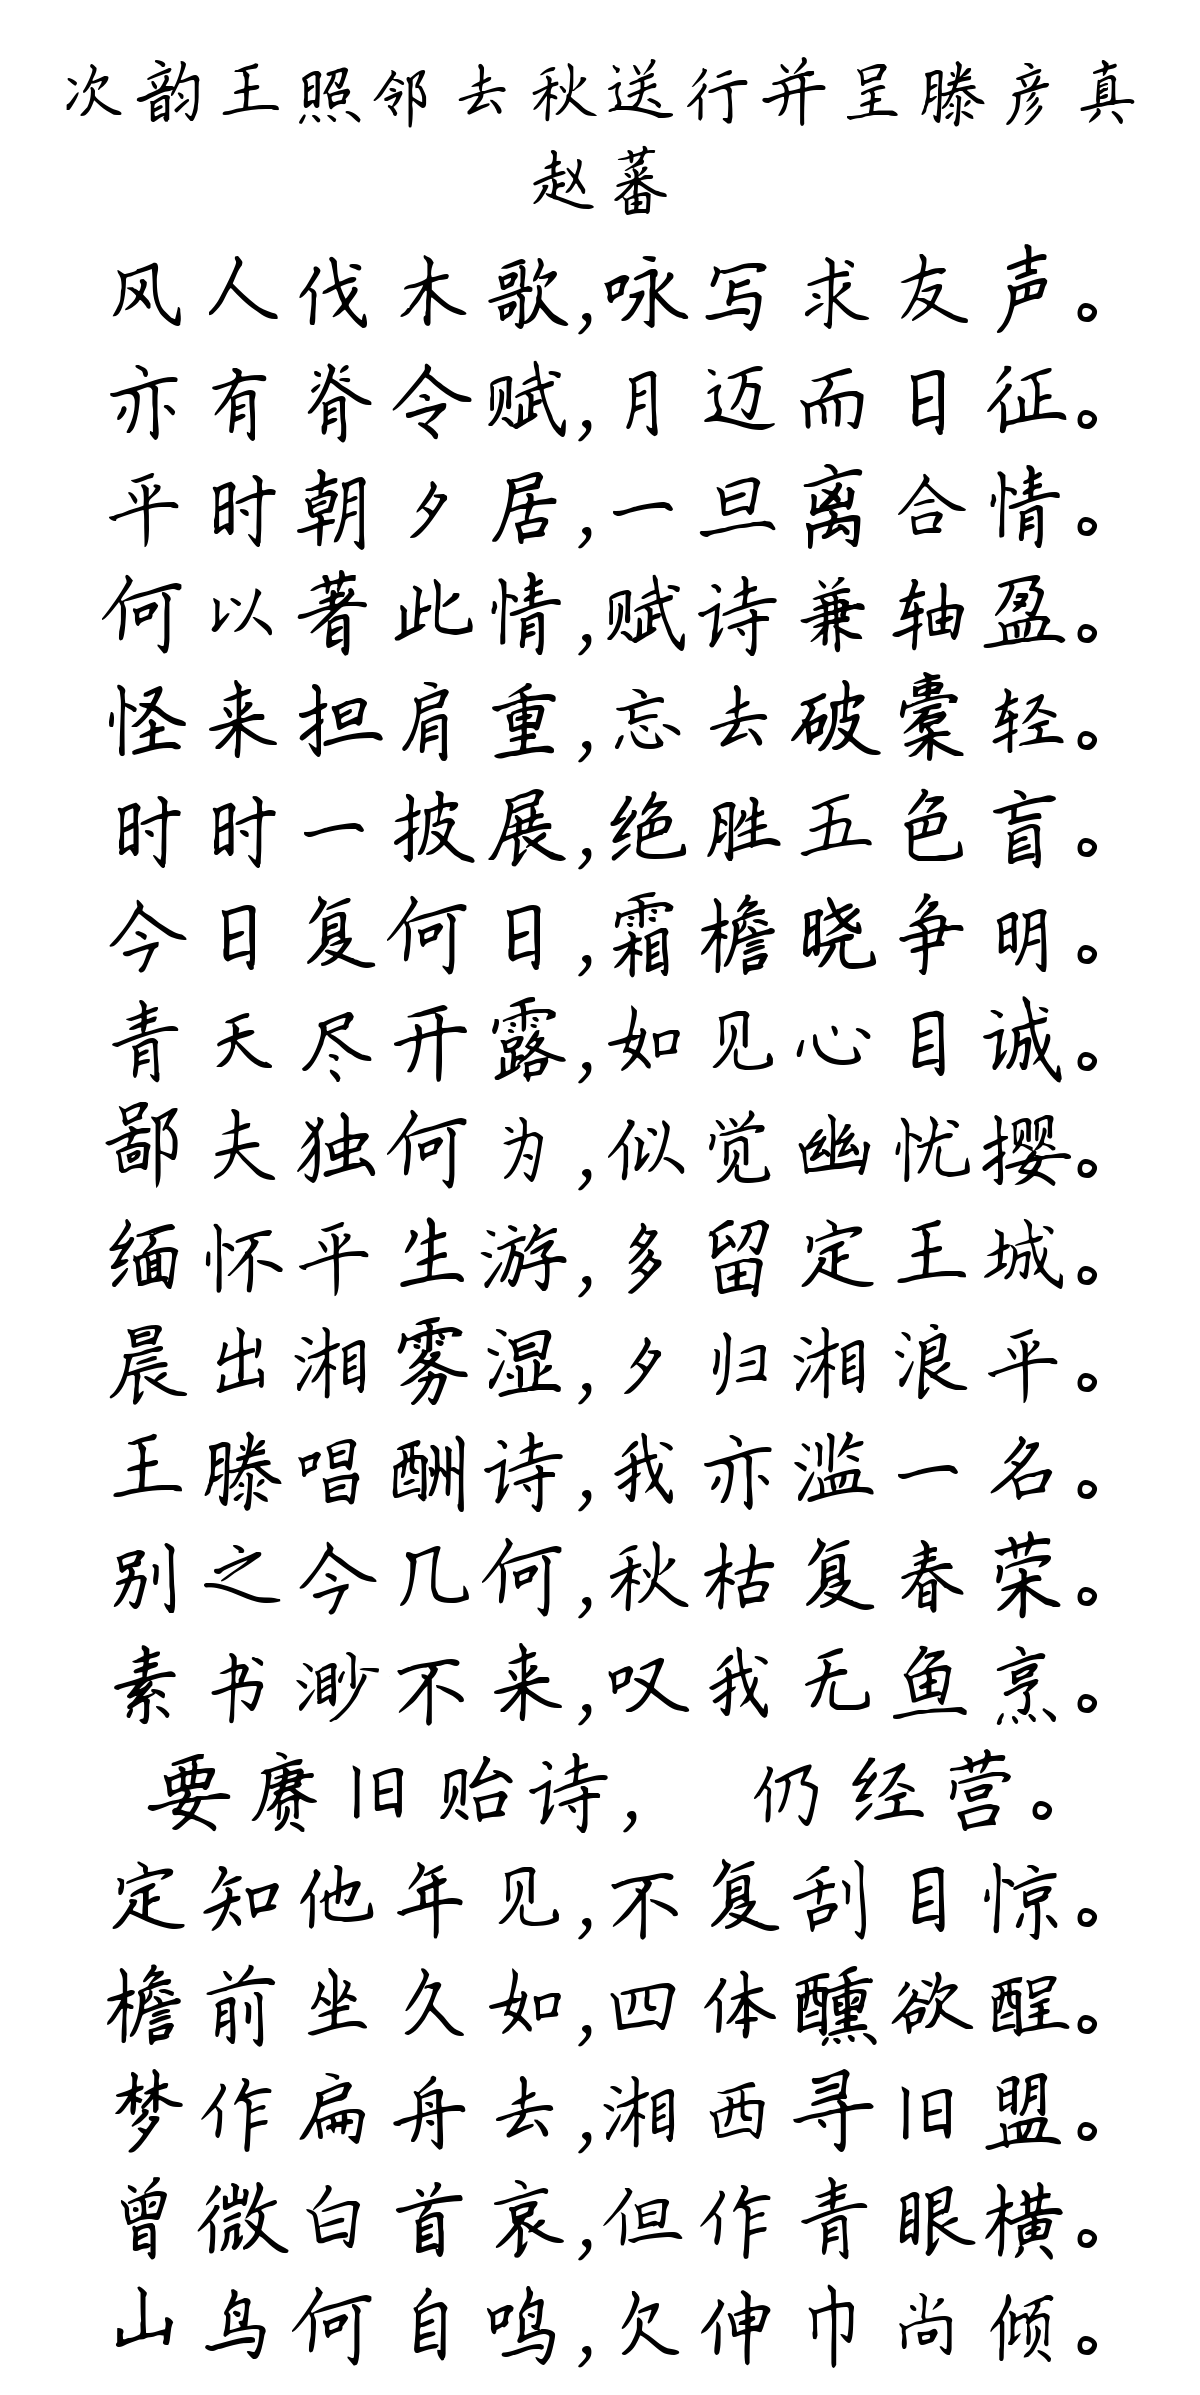 次韵王照邻去秋送行并呈滕彦真
赵蕃
风人伐木歌,咏写求友声。
亦有脊令赋,月迈而日征。
平时朝夕居,一旦离合情。
何以著此情,赋诗兼轴盈。
怪来担肩重,忘去破橐轻。
时时一披展,绝胜五色盲。
今日复何日,霜檐晓争明。
青天尽开露,如见心目诚。
鄙夫独何为,似觉幽忧撄。
缅怀平生游,多留定王城。
晨出湘雾湿,夕归湘浪平。
王滕唱酬诗,我亦滥一名。
别之今几何,秋枯复春荣。
素书渺不来,叹我无鱼烹。
要赓旧贻诗, 仍经营。
定知他年见,不复刮目惊。
檐前坐久如,四体醺欲酲。
梦作扁舟去,湘西寻旧盟。
曾微白首哀,但作青眼横。
山鸟何自鸣,欠伸巾尚倾。